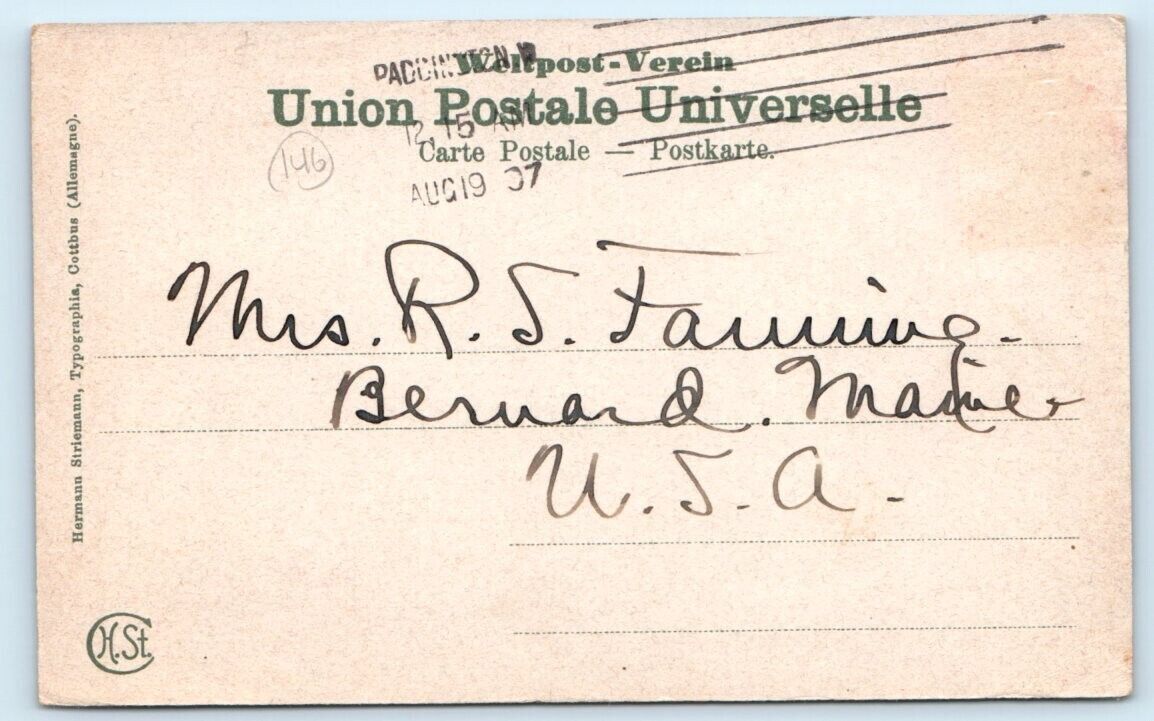 PADDINGTON. W
Weltpost-Verein
Union Postale Universelle
12.15 AM
Carte Postale — Postkarte.
AUG 19 07
146
Mrs. R. S. Fanning.
Bernard. Maine.
U. S. A.
Hermann Striemann, Typographia, Cottbus (Allemagne).
H. St.